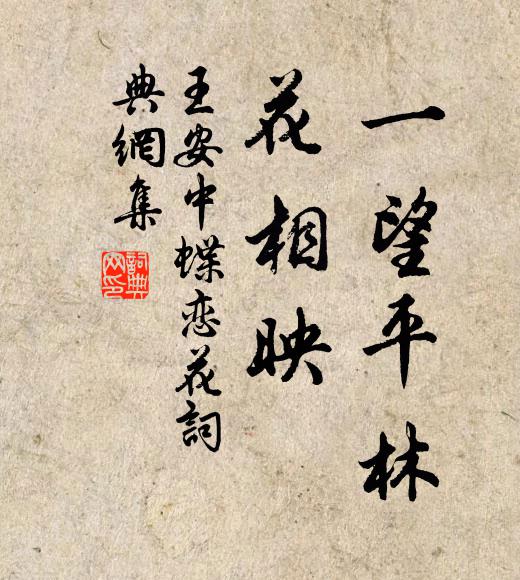 一望平林
花相映
王安中蝶恋花詞
典網集
詞典網印